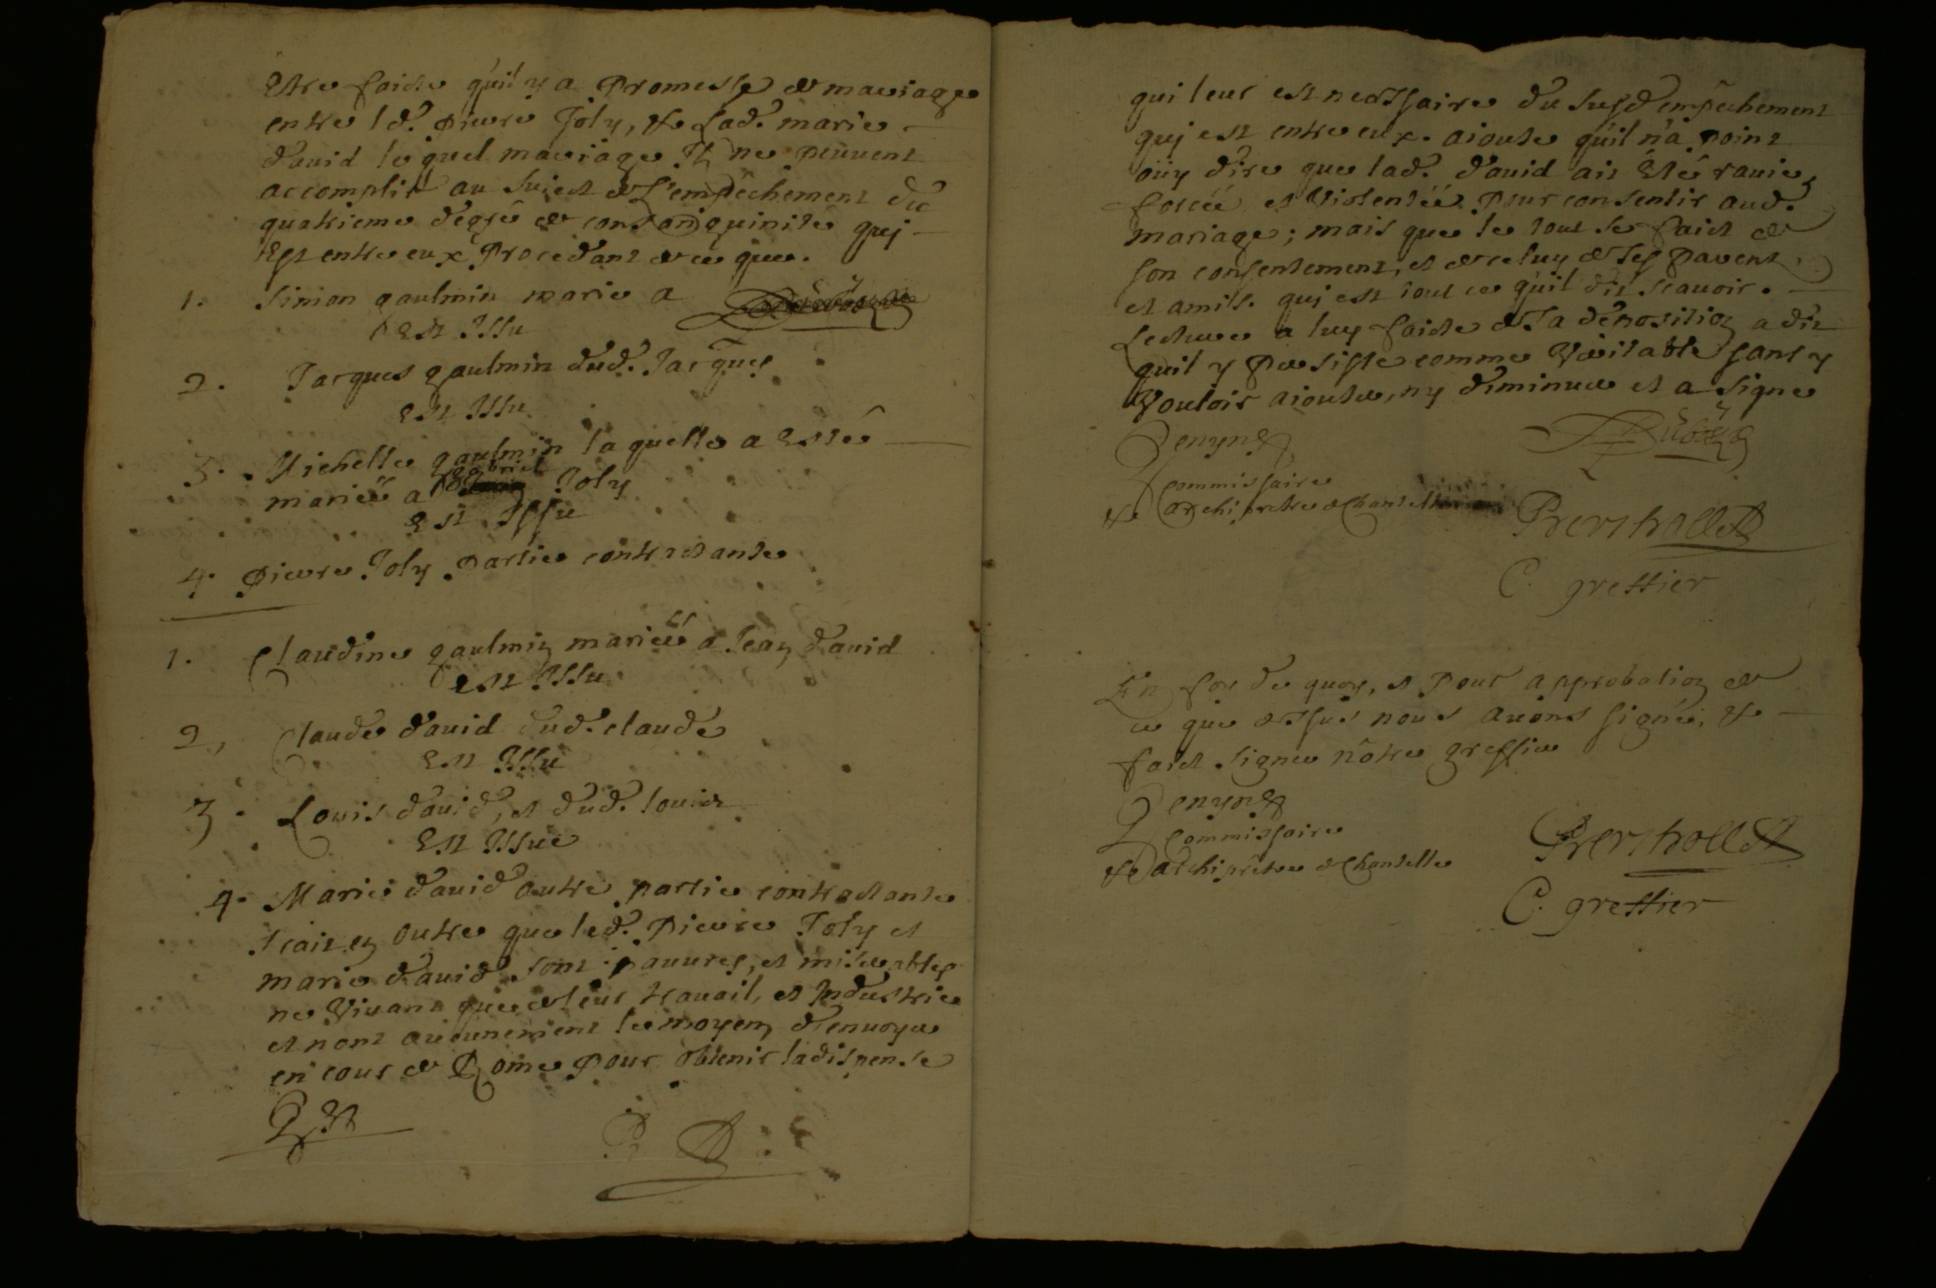 Etre faicte quil y a promesse de mariage
entre led. pierre Joly, & Lad. marie
david lequel mariage Ils ne peuvent
accomplir au suject de L'empêchement du
quatrieme dégré de consanguinité quj
Est entre eux procedant de ce que.
1. Simon gaulmin marie a
Est Issu
2. Jacques gaulmin dud. Jacques
Est Issu
3. Michelle gaulmin laquelle a Estée
mariée a gabriel Joly
Est Issu
4. pierre Joly partie contractante
1. Claudine gaulmin mariée a Jean david
Est Issu
2, Claude david dud. claude
Est Issu
3. Louis david, et dud. louis
Est Issue
4. Marie david autre partie contractante
scait en outre que led. pierre Joly et
marie david sont pauures, et miserables
ne Vivant que de leur trauail, et Industrie
et nont aucunement le moyen d'enuoyer
en cour de Rome pour obtenir la dispense
qui leur est necessaire du susd. empêchement
quj est entre eux. aioute quil n'a point
oüy dire que lad. david ait Esté ravie,
forcée et Violentée pour consentir aud.
mariage; mais que le tout se faict de
son consentement, et de celuy de ses parents
et amis. quj est tout ce quil dit scauoir.
Lecture a luy faicte de sa déposition a dit
quil y persiste comme Veritable sans y
Vouloir aiouter, ny diminuer et a signe
commissaire
& archiprêtre de Chantelle
C. greffier
En foy de quoy, et pour approbation de
ce que dessus nous auons signé, &
faict signer nôtre greffier
commissaire
& archiprêtre de Chantelle
C. greffier